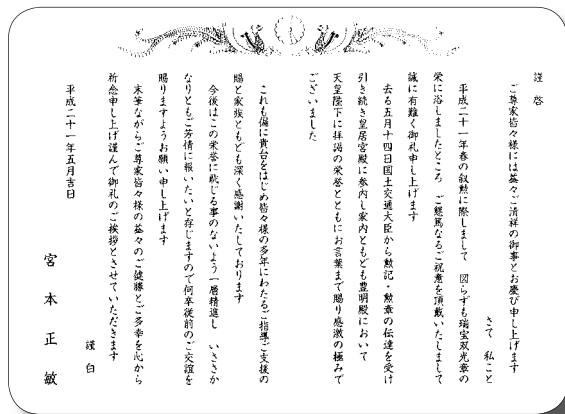 謹啓
ご尊家皆々様には益々ご清祥の御事とお慶び申し上げます
さて 私こと
平成二十一年春の叙勲に際しまして 図らずも瑞宝双光章の
栄に浴しましたところ ご懇篤なるご祝意を頂戴いたしまして
誠に有難く御礼申し上げます
去る五月十四日国土交通大臣から勲記・勲章の伝達を受け
引き続き皇居宮殿に参内し家内ともども豊明殿において
天皇陛下に拝謁の栄誉とともにお言葉まで賜り感激の極みで
ございました
これも偏に貴台をはじめ皆々様の多年にわたるご指導ご支援の
賜と家族ともども深く感謝いたしております
今後はこの栄誉に恥じる事のないよう一層精進し いささか
なりともご芳情に報いたいと存じますので何卒従前のご交誼を
賜りますようお願い申し上げます
末筆ながらご尊家皆々様の益々のご健勝とご多幸を心から
祈念申し上げ謹んで御礼のご挨拶とさせていただきます
謹白
平成二十一年五月吉日
宮本正敏